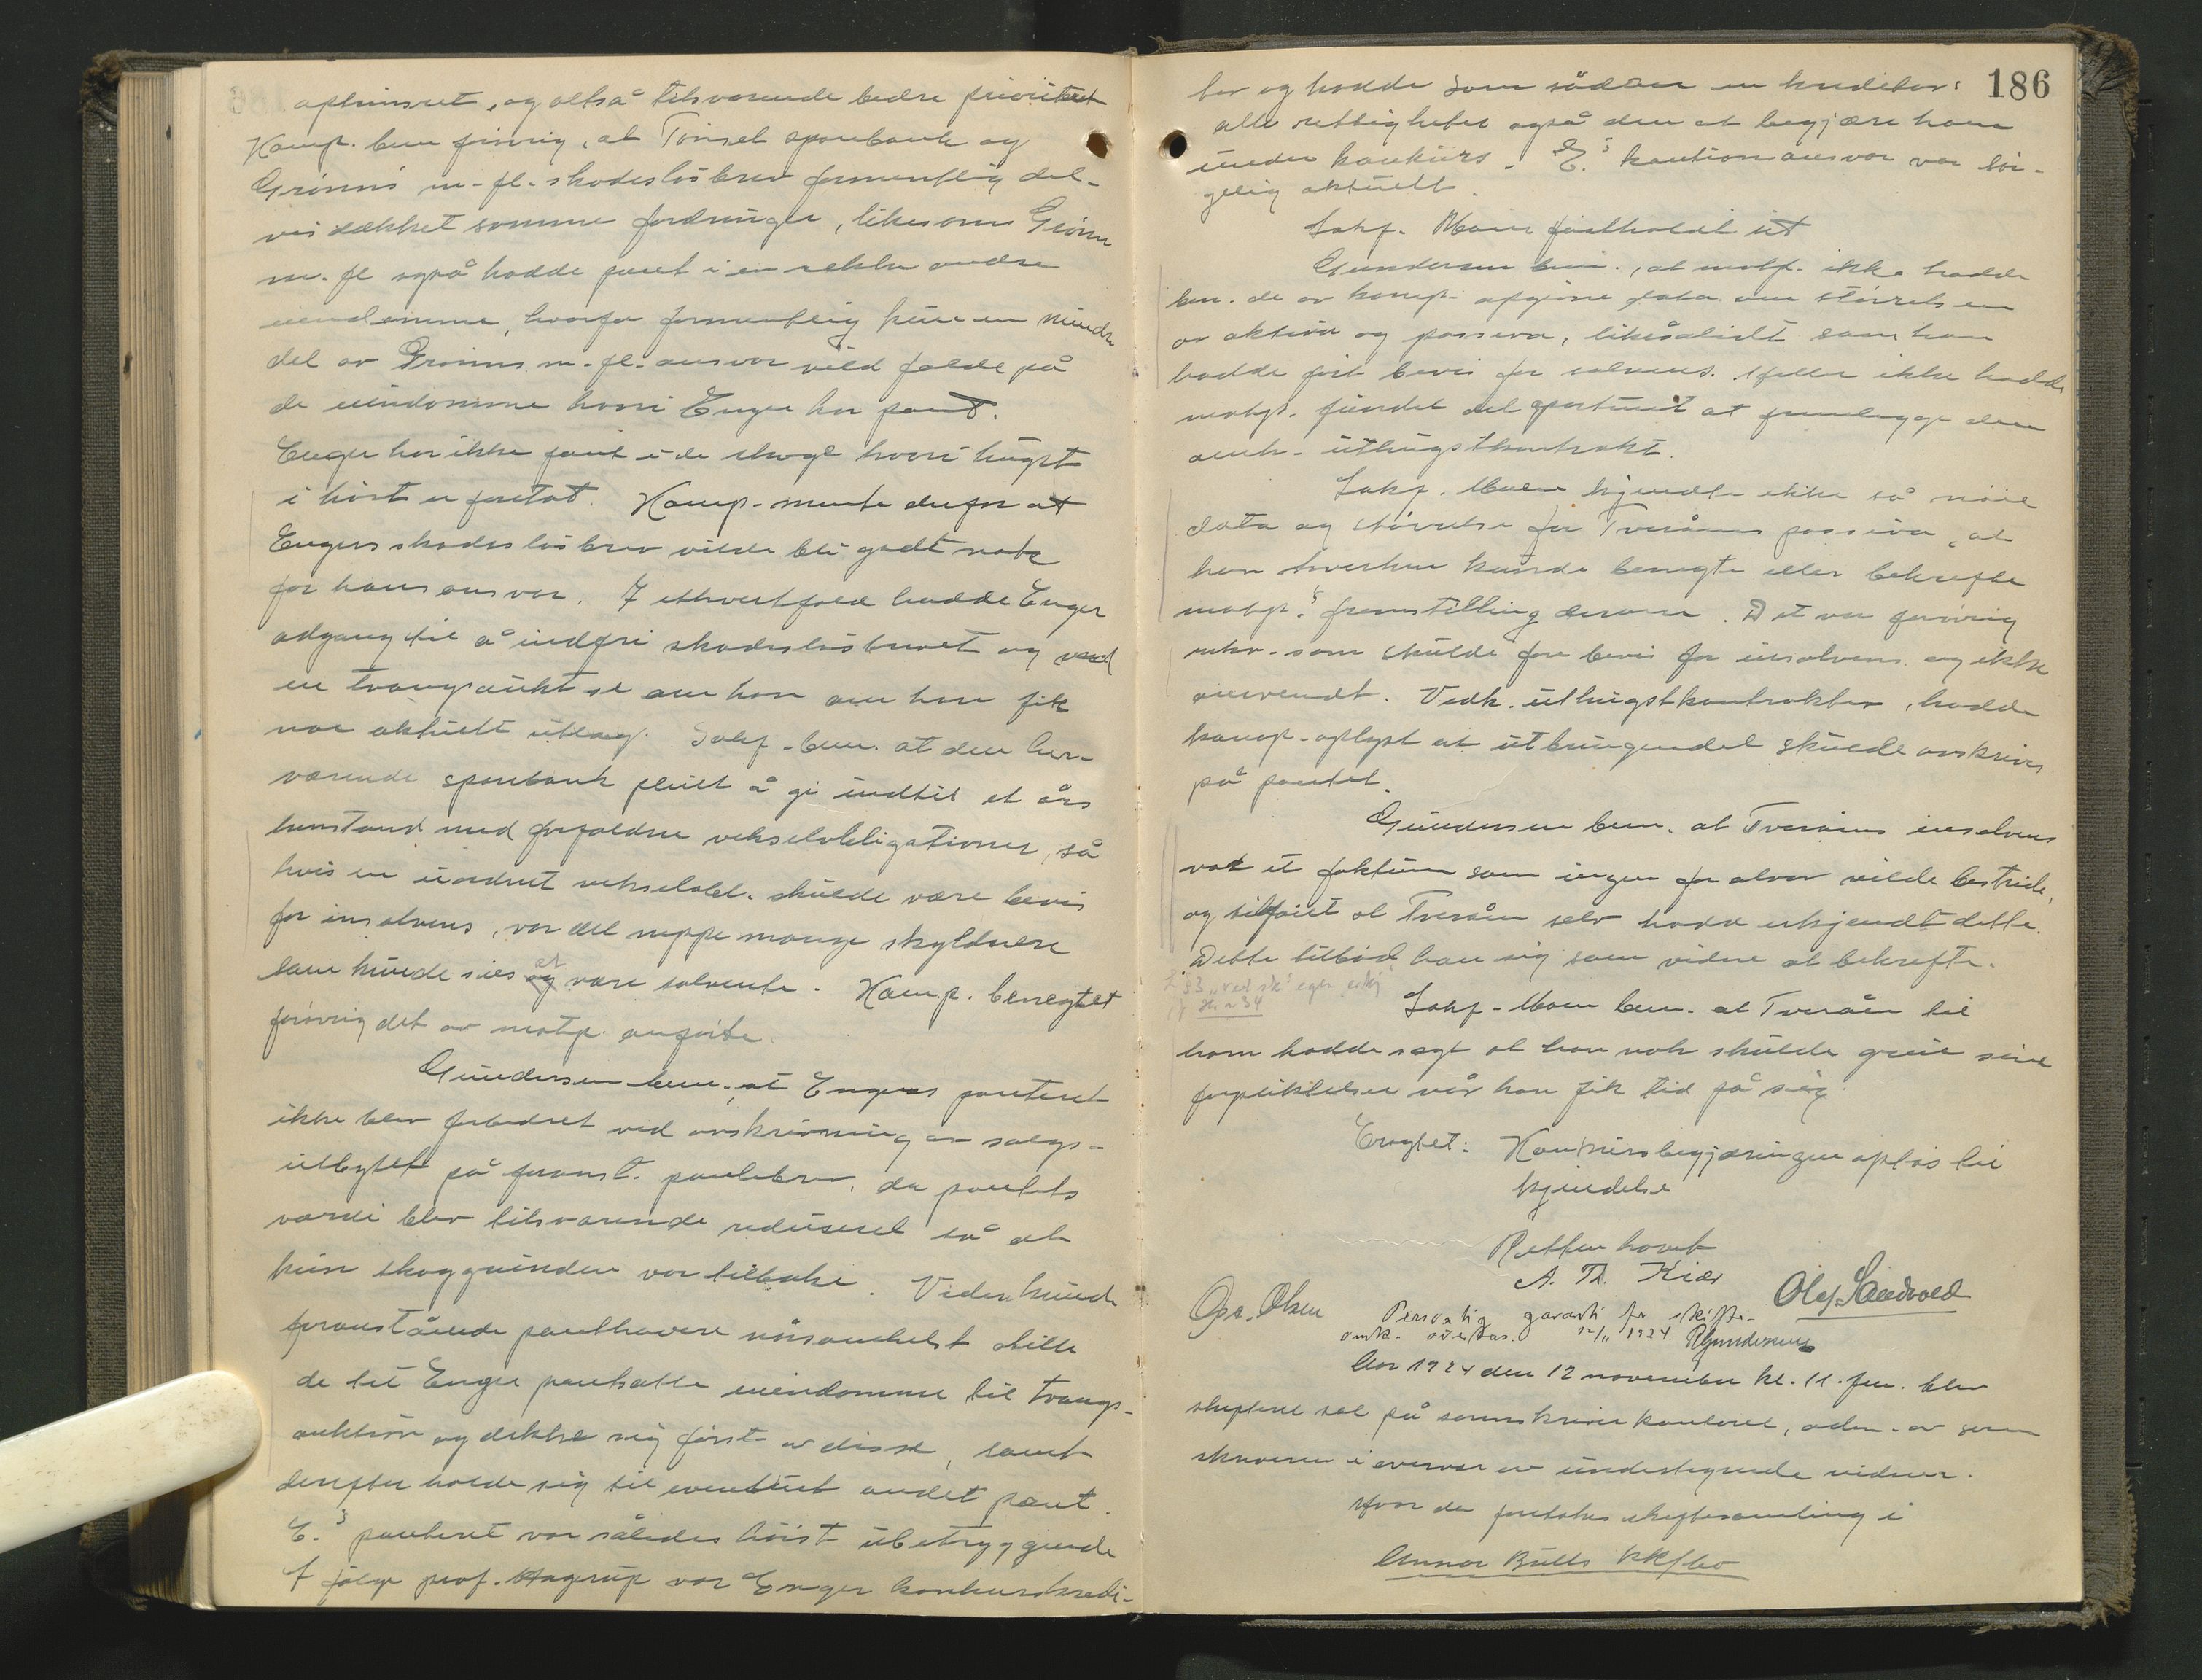 og altså tilsvarende bedre prioritet
Komp. bem. forøvrig, at Tønset sparebank og
Grønns m. fl. skadesløsbrev formentlig del-
vis dækket samme fordringer, likesom Grønn
m. fl. også hadde pant i en rekke andre
eiendomme, hvorfor formentlig kun en mindre
del av Grønns m. fl. ansvar vild falde på
de eiendomme hvori Enger har pant.
Enger har ikke pant i de skoge hvori hugst
i høst er foretat. Komp. mente derfor at
Engers skadesløsbrev vilde bli godt nok
for hans ansvar. I ethvertfald hadde Enger
adgang til å indfri skadesløsbrevet og ved
en tvangsauksjon se om han om han fik
noe aktuelt utlæg. Sakf. bem. at den her-
værende sparebank pleiet å gi indtil et års
henstand med forfaldne vekselobligationer, så
hvis en uordnet vekselobl. skulde være bevis
for insolvens, var det neppe mange skyldnere
som kunde sies og at være solvente. Komp. benegtet
forøvrig det av motp. anførte.
Gundersen bem. at Engers panteret
ikke blev forbedret ved avskrivning av salgs-
utbytet på foranst. pantebrev, da pantets
værdi blev tilsvarende reduseret så at
kun skoggrunden var tilbake. Videre kunde
foranstående panthavere nårsomhelst stille
de til Enger pantsatte eiendomme til tvangs-
auktion og dekke sig først av disse, samt
derefter holde sig til eventuelt andet pant.
E.s panteret var således høist ubetryggende
I følge prof. Hagerup var Enger konkurskredi-
186
tor og hadde som sådan en kreditors
alle rettigheter også den at begjære ham
under konkurs. E.s kautionsansvar var sør-
gelig aktuelt.
Sakf. Moen fastholdt sit
Gundersen bem., at motp. ikke hadde
ben. de av komp. opgivne data om størrelsen
av aktiva og passiva, likesålidt som han
hadde ført bevis for solvens. Heller ikke hadde
motp. fundet det oportunt at fremlegge den
omh. uthugstkontrakt.
Sakf. Moen kjendte ikke så nøie
data og størrelse for Tveråens passiva, at
han hverken kunde benegte eller bekrefte
motp.s fremstilling derom. Det var forøvrig
rekv. som skulde føre bevis for insolvens og ikke
omvendt. Vedk. uthugstkontrakten, hadde
komp. oplyst at utbringendet skulde avskrives
på pantet.
Gundersen bem. at Tveråens insolvens
var et faktum som ingen for alvor vilde bestride,
og tilføiet at Tveråen selv hadde erkjendt dette.
Dette tilbød han sig som vidne at bekrefte.
Sakf. Moen bem. at Tveråen til
ham hadde sagt at han nok skulde greie sine
forpliktelser når han fik tid på sig.
Eragtet: Konkursbegjæringen optas til
kjendelse
Retten hævet
A. Th. Kiær
Olaf Sandvold
Ops. Olsen
Personlig garanti for skifte-
omk. overtas. 12/11 1924. RGundersen
Aar 1924 den 12 november kl. 11. fm. blev
skifteret sat på sorenskriverkontoret, adm. av soren
skriveren i overvær av undertegnede vidner.
Hvor da foretokes skiftesamling i
Anna Bulls kk/bo